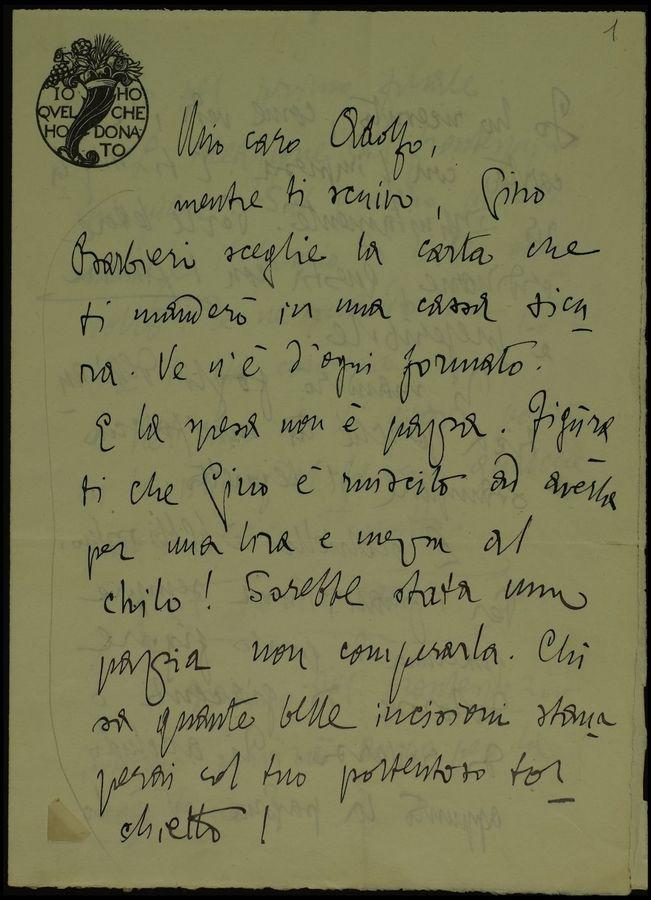 1
IO HO
QVEL CHE
HO DONA-
TO
Mio caro Adolfo,
mentre ti scrivo, Gino
Barbieri sceglie la carta che
ti manderò in una cassa sicu
ra. Ve n'è d'ogni formato.
E la spesa non è pazza. Figura
ti che Gino è riuscito ad averla
per una lira e mezza al
chilo! Sarebbe stata una
pazzia non comperarla. Chi
sa quante belle incisioni stam
perai col tuo portentoso tor
chietto!